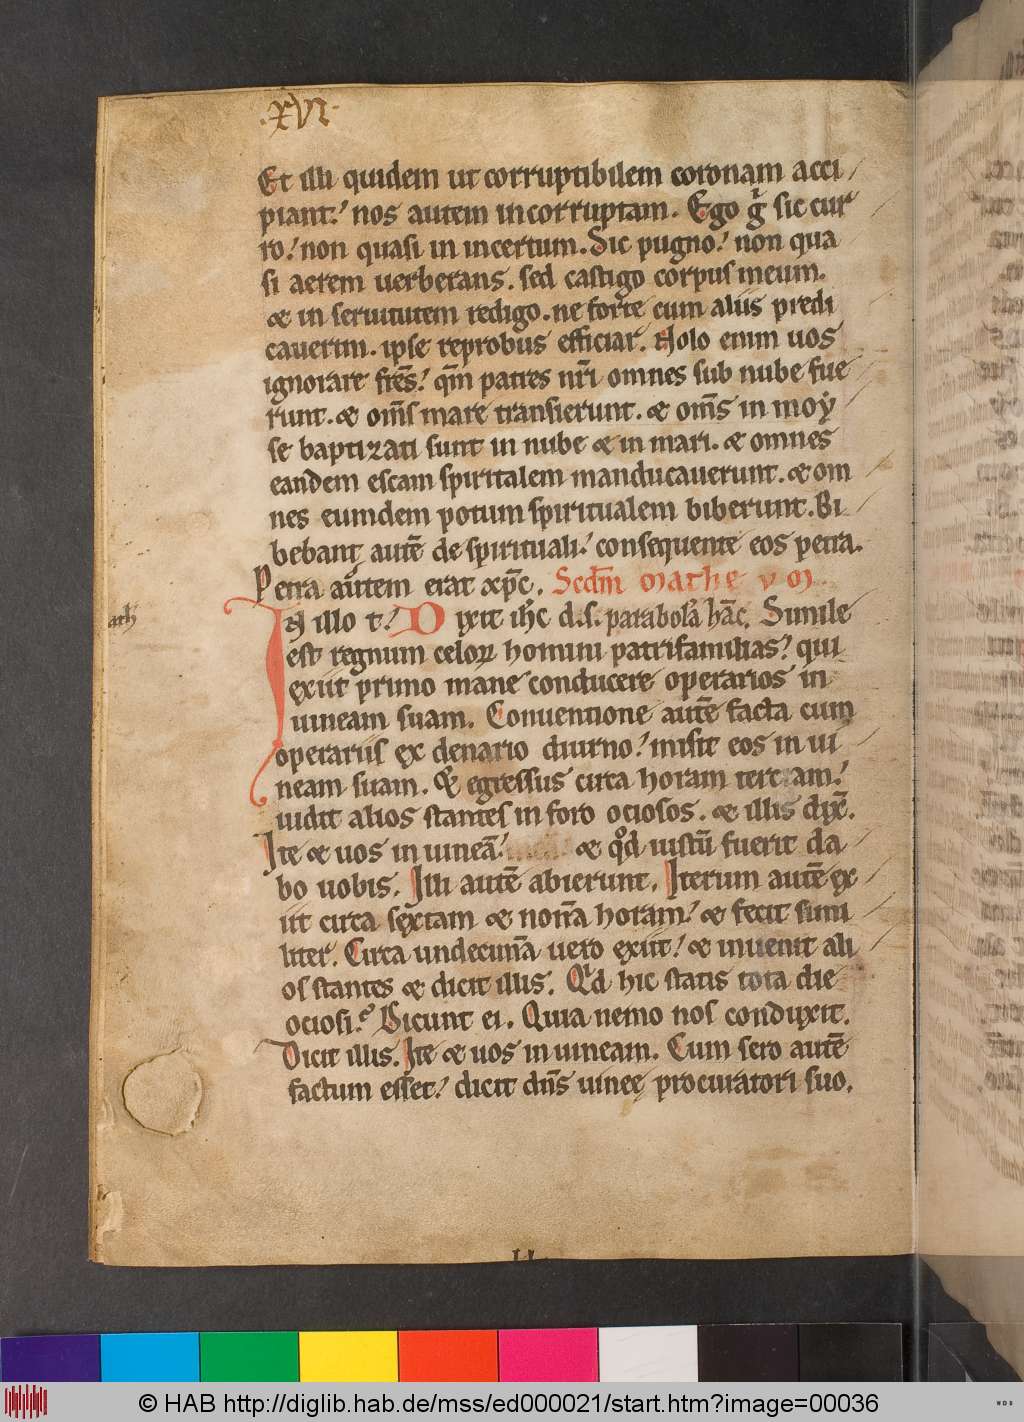 .XVI.
Et illi quidem ut corruptibilem coronam acci
piant. nos autem incorruptam. Ego g̃ sic cur
ro. non quasi in incertum. Sic pugno. non qua
si aerem uerberans. sed castigo corpus meum.
& in seruitutem redigo. ne forte cum aliis predi
cauerim. ipse reprobus efficiar. Nolo enim uos
ignorare fr̃es. qm̃ patres nr̃i omnes sub nube fue
runt. & om̃s mare transierunt. & om̃s in moẏ
se baptizati sunt in nube & in mari. & omnes
eandem escam spiritalem manducauerunt. & om
nes eumdem potum spiritualem biberunt. Bi
bebant autē de spirituali. consequente eos petra.
Petra autem erat xp̄c. Scdm̄ Mathevm.
ath
In illo t. Dixit ih̄c d.s. parabolā hāc. Simile
est regnum celoꝝ homini patrifamilias. qui
exiit primo mane conducere operarios in
uineam suam. Conuentione autē facta cum
operariis ex denario diurno. misit eos in ui
neam suam. & egressus circa horam terciam.
uidit alios stantes in foro ociosos. & illis dix̄.
Ite & uos in uineā. & qd̛ iustū fuerit da
bo uobis. Illi autē abierunt. Iterum autē ex
iit circa sextam & nonā horam. & fecit simi
liter. Circa undecimā uero exiit. & inuenit ali
os stantes & dicit illis. Qd̛ hic statis tota die
ociosi? Dicunt ei. Quia nemo nos conduxit.
Dicit illis. Ite & uos in uineam. Cum sero autē
factum esset. dicit dn̄s uineę procuratori suo.
© HAB http://diglib.hab.de/mss/ed000021/start.htm?image=00036